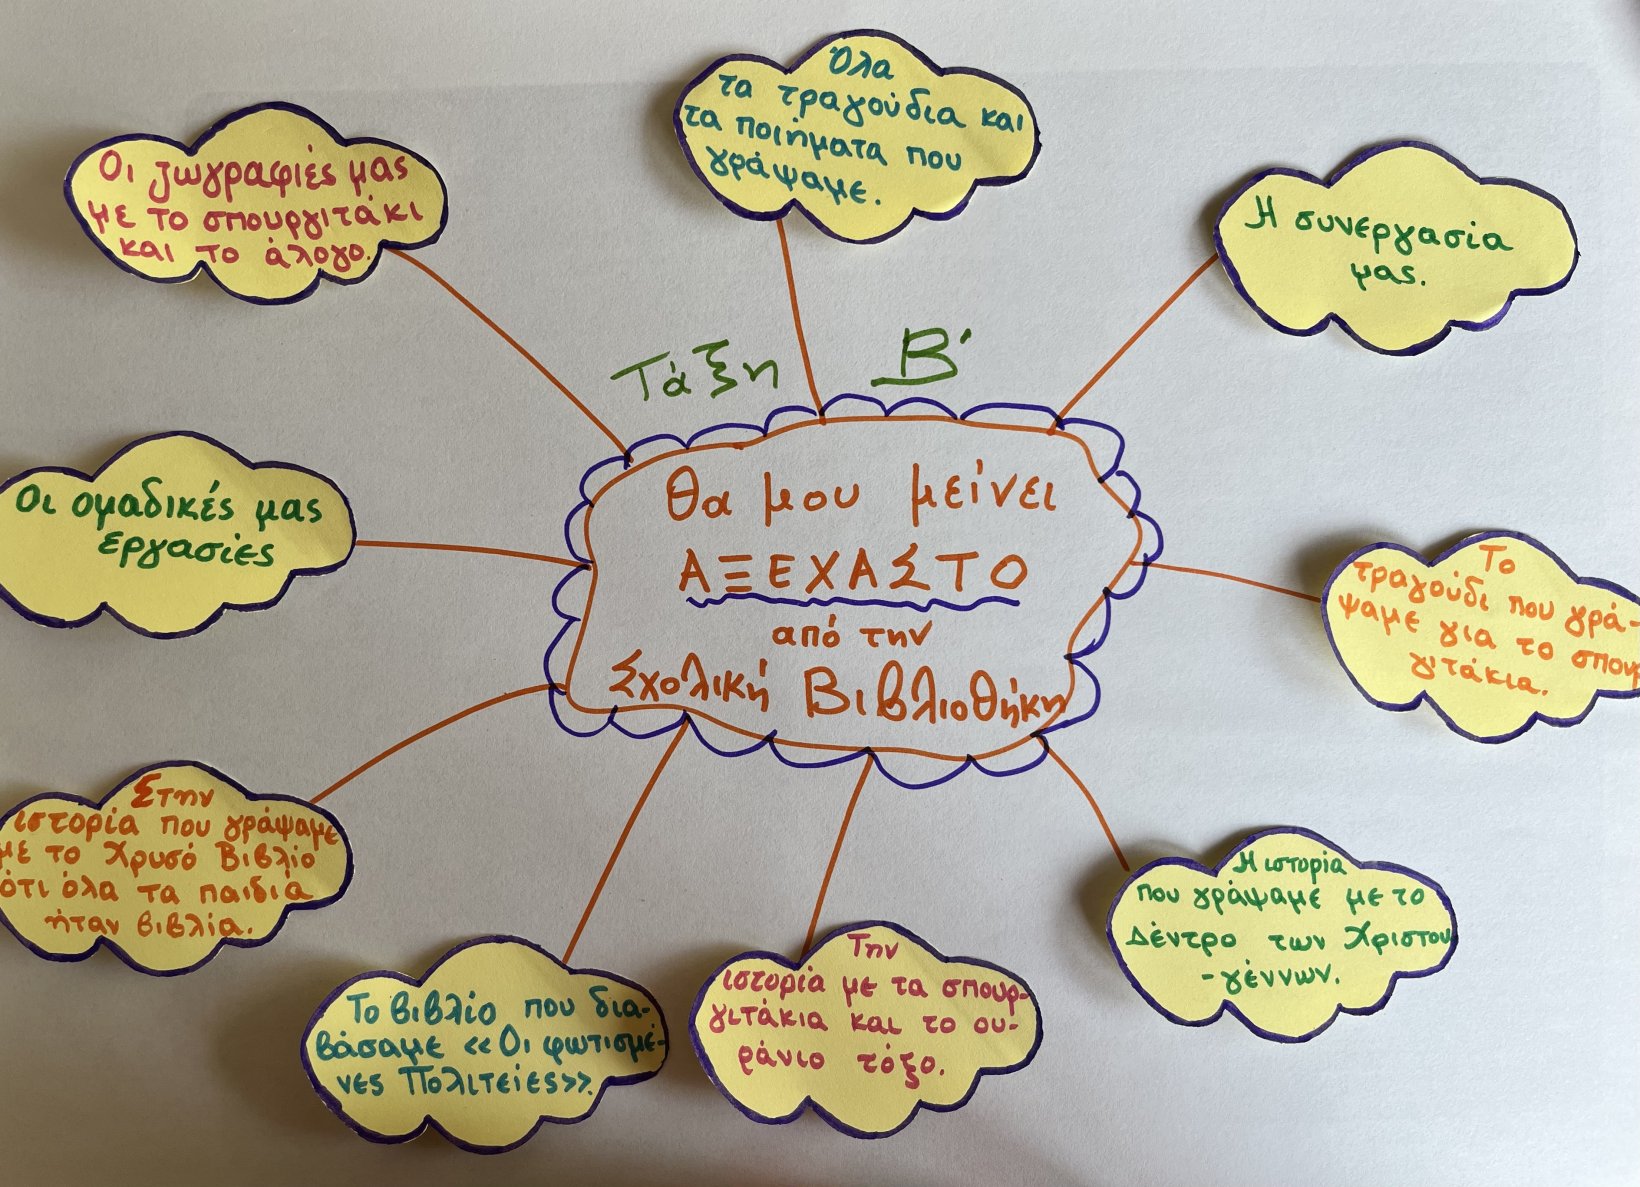 Όλα
τα τραγούδια και
τα ποιήματα που
γράψαμε.
Οι ζωγραφιές μας
με το σπουργιτάκι
και το άλογο.
Η συνεργασία
μας.
Τάξη Β'
Οι ομαδικές μας
εργασίες
Θα μου μείνει
ΑΞΕΧΑΣΤΟ
από την
Σχολική Βιβλιοθήκη
Το
τραγούδι που γρά-
ψαμε για το σπουρ
γιτάκια.
Στην
ιστορία που γράψαμε
με το Χρυσό Βιβλίο
ότι όλα τα παιδιά
ήταν βιβλία.
Η ιστορία
που γράψαμε με το
Δέντρο των Χριστου
-γέννων.
Το βιβλίο που δια-
βάσαμε «Οι φωτισμέ-
νες Πολιτείες».
Την
ιστορία με τα σπουρ-
γιτάκια και το ου-
ράνιο τόξο.